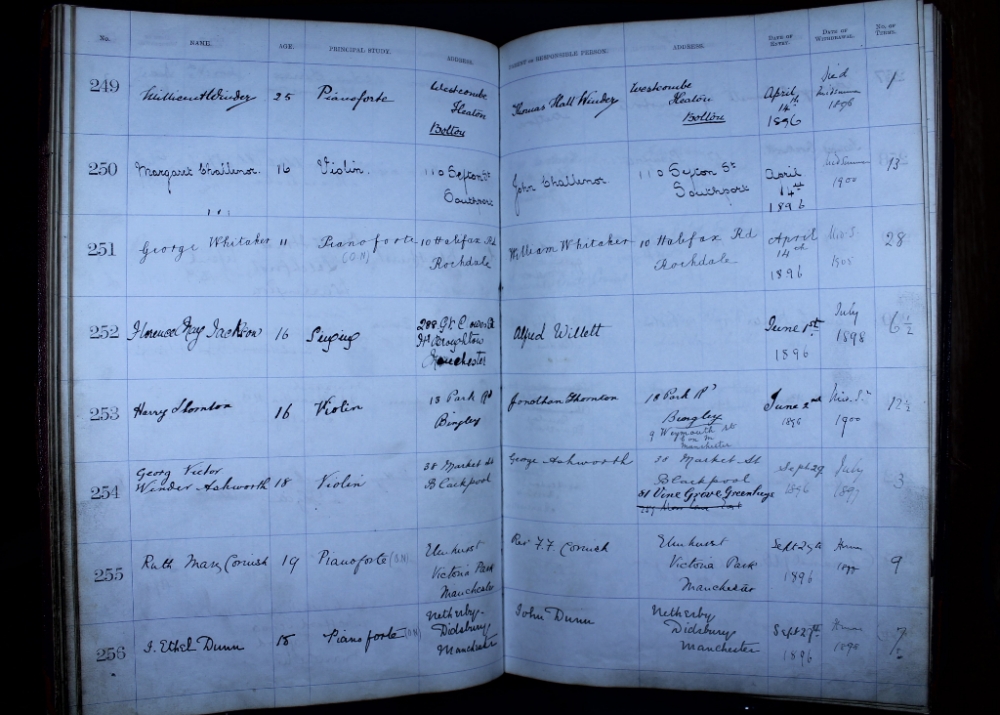 No. NAME. AGE. PRINCIPAL STUDY. ADDRESS. PARENT OR RESPONSIBLE PERSON. ADDRESS. DATE OF ENTRY. DATE OF WITHDRAWAL. No. OF TERMS.
249 Millicent Winder 25 Pianoforte Westcombe Thomas Hall Winder Westcombe April Died 1
Heaton Heaton 14th Midsummer
Bolton Bolton 1896 1896
250 Margaret Challenor. 16 Violin. 110 Sefton St John Challenor. 110 Sefton St April Midsummer 13
Southport Southport 14th 1900
1896
251 George Whitaker 11 Pianoforte 10 Halifax Rd William Whitaker 10 Halifax Rd April 28
(O.N) Rochdale Rochdale 14th 1905
1896
252 Florence May Jackson 16 Singing 288 Gt Alfred Willett June 1st July 6 1/2
Manchester 1896 1898
253 Harry Thornton 16 Violin 18 Park Rd Jonathan Thornton 18 Park Rd June 2nd 12 1/2
Bingley Bingley 1896 1900
9 Weymouth St
Manchester
254 Georg Victor
Winder Ashworth 18 Violin 38 Market St George Ashworth 38 Market St Sept 29 July 3
Blackpool Blackpool 1896 1897
31 Vine Grove Greenheys
255 Ruth Mary Cornish 19 Pianoforte (O.N) Elmhurst Rev F.F. Cornish Elmhurst Sept 29th 9
Victoria Park Victoria Park 1896
Manchester Manchester
256 J. Ethel Dunn 18 Pianoforte (O.N) Netherby John Dunn Netherby Sept 29th 7
Didsbury Didsbury 1896 1898
Manchester Manchester